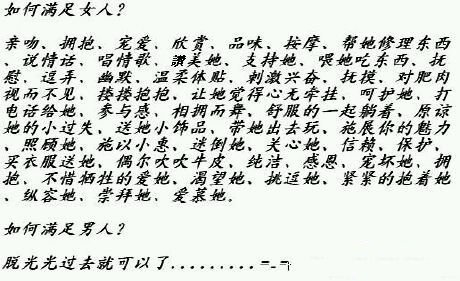 如何满足女人?
亲吻、拥抱、宠爱、欣赏、品味、按摩、帮她修理东西
、说情话、唱情歌、讚美她、支持她、喂她吃东西、抚
慰、逗弄、幽默、温柔体贴、刺激兴奋、抚摸、对肥肉
视而不见、搂搂抱抱、让她觉得心无牵挂、呵护她、打
电话给她、参与感、相拥而舞、舒服的一起躺着、原谅
她的小过失、送她小饰品、带她出去玩、施展你的魅力
、照顾她、施以小惠、迷倒她、关心她、信赖、保护、
买衣服送她、偶尔吹吹牛皮、纯洁、感恩、宠坏她、拥
抱、不惜牺牲的爱她、渴望她、挑逗她、紧紧的抱着她
、纵容她、崇拜她、爱慕她.
如何满足男人?
脱光光过去就可以了.........=_=i